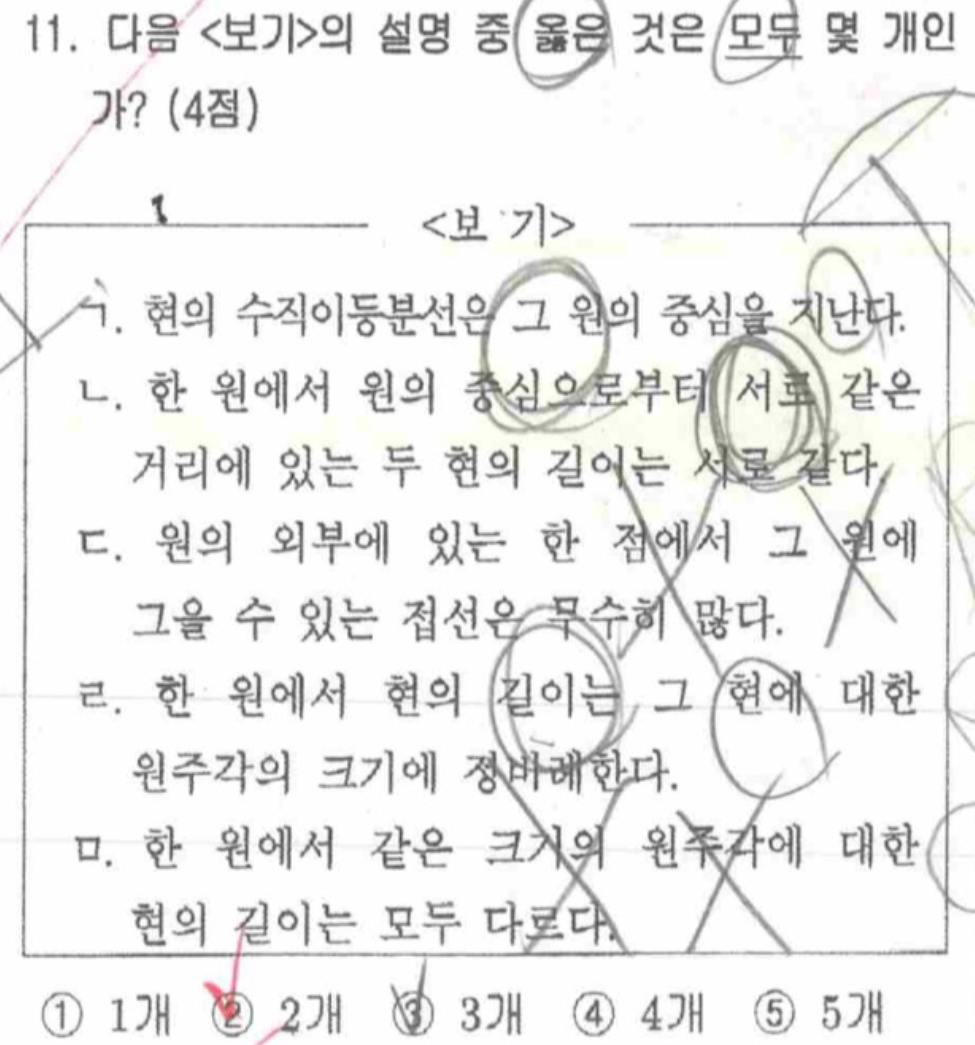 11. 다음 <보기>의 설명 중 옳은 것은 모두 몇 개인
가? (4점)
<보 기>
ㄱ. 현의 수직이등분선은 그 원의 중심을 지난다.
ㄴ. 한 원에서 원의 중심으로부터 서로 같은
거리에 있는 두 현의 길이는 서로 같다.
ㄷ. 원의 외부에 있는 한 점에서 그 원에
그을 수 있는 접선은 무수히 많다.
ㄹ. 한 원에서 현의 길이는 그 현에 대한
원주각의 크기에 정비례한다.
ㅁ. 한 원에서 같은 크기의 원주각에 대한
현의 길이는 모두 다르다.
① 1개 ② 2개 ③ 3개 ④ 4개 ⑤ 5개